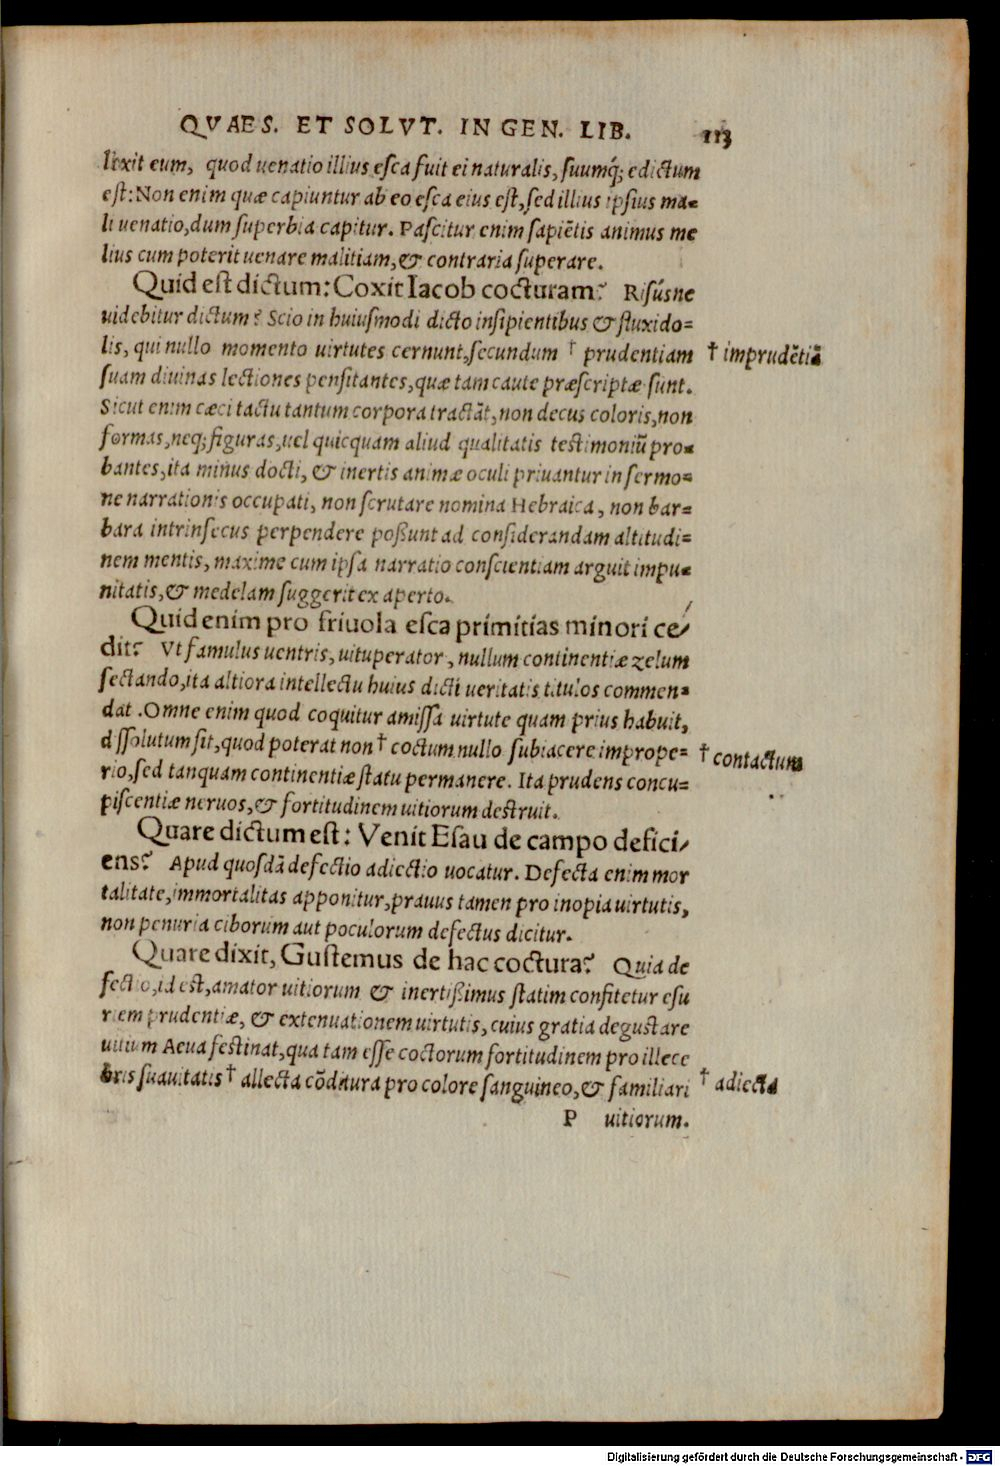 QVAES. ET SOLVT. IN GEN. LIB. 113
lexit eum, quod uenatio illius esca fuit ei naturalis, suumq́; edictum
est: Non enim quæ capiuntur ab eo esca eius est, sed illius ipsius ma-
li uenatio, dum superbia capitur. Pascitur enim sapiẽtis animus me
lius cum poterit uenare malitiam, & contraria superare.
Quid est dictum: Coxit Iacob cocturam? Risúsne
uidebitur dictum? Scio in huiusmodi dicto insipientibus & fluxido=
lis, qui nullo momento uirtutes cernunt, secundum † prudentiam † imprudẽtiã
suam diuinas lectiones pensitantes, quæ tam caute præscriptæ sunt.
Sicut enim cæci tactu tantum corpora tractãt, non decus coloris, non
formas, neq; figuras, uel quicquam aliud qualitatis testimoniũ pro-
bantes, ita minus docti, & inertis animæ oculi priuantur in sermo=
ne narrationis occupati, non scrutare nomina Hebraica, non bar=
bara intrinsecus perpendere possunt ad considerandam altitudi=
nem mentis, maxime cum ipsa narratio conscientiam arguit impu-
nitatis, & medelam suggerit ex aperto.
Quid enim pro friuola esca primitias minori ce/
dit? Vt famulus uentris, uituperator, nullum continentiæ zelum
sectando, ita altiora intellectu huius dicti ueritatis titulos commen-
dat. Omne enim quod coquitur amissa uirtute quam prius habuit,
dissolutum fit, quod poterat non † coctum nullo subiacere imprope= † contactum
rio, sed tanquam continentiæ statu permanere. Ita prudens concu=
piscentiæ neruos, & fortitudinem uitiorum destruit.
Quare dictum est: Venit Esau de campo defici/
ens? Apud quosdã defectio adiectio uocatur. Defecta enim mor
talitate, immortalitas apponitur, prauus tamen pro inopia uirtutis,
non penuria ciborum aut poculorum defectus dicitur.
Quare dixit, Gustemus de hac coctura? Quia de
fectio, id est, amator uitiorum & inertissimus statim confitetur esu
riem prudentiæ, & extenuationem uirtutis, cuius gratia degustare
uitium Aeua festinat, qua tam esse coctorum fortitudinem pro illece
bris suauitatis † allecta cõditura pro colore sanguineo, & familiari † adiecta
P uitiorum.
Digitalisierung gefördert durch die Deutsche Forschungsgemeinschaft - DFG